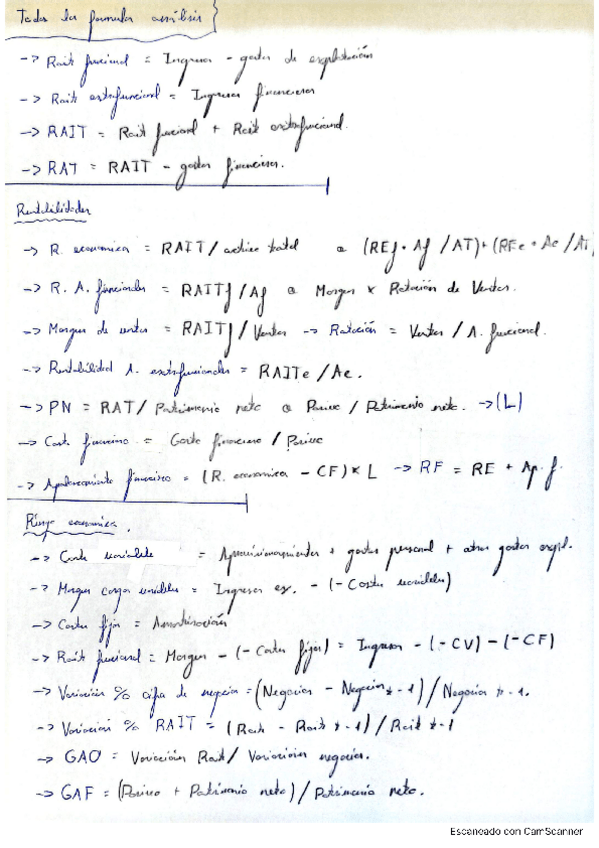 Todas las formulas análisis
-> Rait funcional = Ingresos - gastos de explotación
-> Rait extrafuncional = Ingresos financieros
-> RAIT = Rait funcional + Rait extrafuncional.
-> RAT = RAIT - gastos financieros.
Rentabilidades
-> R. economica = RAIT / activo total o (REf · Af / AT) + (REe · Ae / AT)
-> R. A. funcionales = RAITf / Af o Margen x Rotación de Ventas.
-> Margen de ventas = RAITf / Ventas -> Rotación = Ventas / A. funcional.
-> Rentabilidad A. extrafuncionales = RAITe / Ae.
-> PN = RAT / Patrimonio neto o Pasivo / Patrimonio neto. -> (L)
-> Coste financiero = Gasto financiero / Pasivo
-> Apalancamiento financiero = (R. economica - CF) x L -> RF = RE + Ap. f.
Riesgo economico.
-> Costes variables = Aprovisionamientos + gastos personal + otros gastos expl.
-> Margen cargas variables = Ingresos ex. - (- Costes variables)
-> Costes fijos = Amortización
-> Rait funcional = Margen - (- Costes fijos) = Ingresos - (- CV) - (- CF)
-> Variación % cifra de negocio = (Negocios - Negocios t-1) / Negocios t-1.
-> Variación % RAIT = (Rait - Rait t-1) / Rait t-1
-> GAO = Variación Rait / Variación negocios.
-> GAF = (Pasivo + Patrimonio neto) / Patrimonio neto.
Escaneado con CamScanner